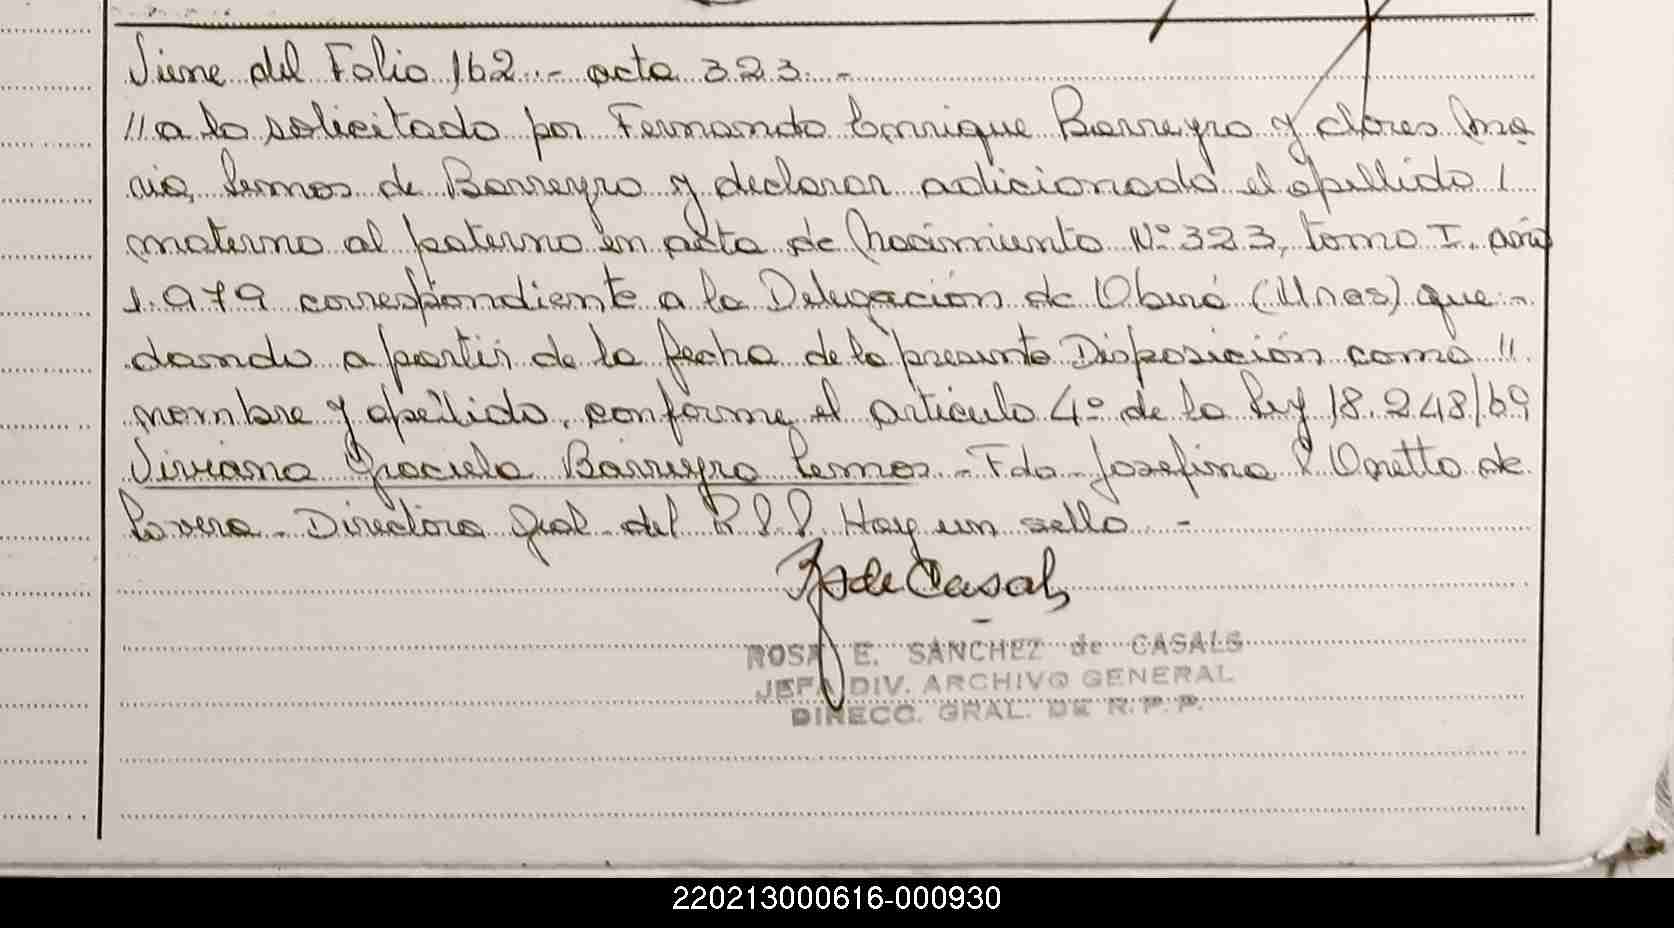 Viene del Folio 162.- acta 323.-
// a lo solicitado por Fernando Enrique Barreyro y Clores Ma
ria Lemos de Barreyro y declarar adicionado el apellido /
materno al paterno en acta de Nacimiento Nº 323, tomo I. año
1.979 correspondiente a la Delegación de Oberá (Mnes) que-
dando a partir de la fecha de la presente Disposición como //
nombre y apellido, conforme el artículo 4º de la Ley 18.248/69
Viviana Graciela Barreyro Lemos - Fdo - Josefina Onetto de
Lovera - Directora Gral - del R.P.P. Hay un sello -
de Casals
ROSA E. SANCHEZ de CASALS
JEFA DIV. ARCHIVO GENERAL
DIRECC. GRAL. DE R. P. P.
220213000616-000930